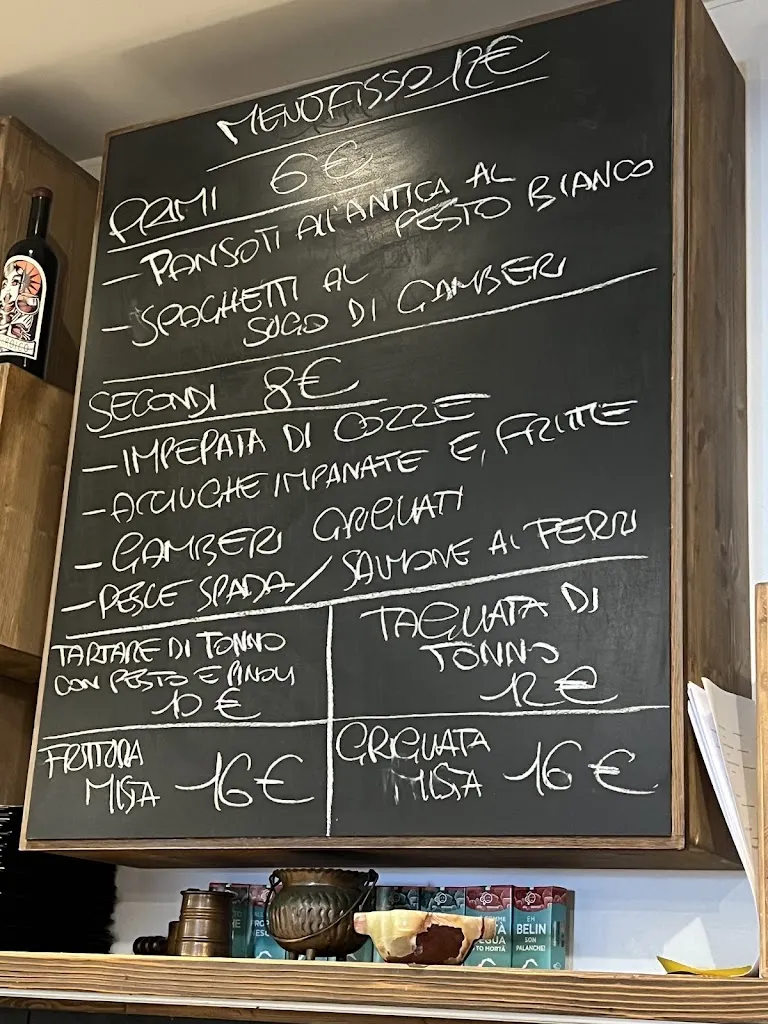 MENÙ FISSO 12€
PRIMI 6€
- PANSOTI ALL'ANTICA AL
PESTO BIANCO
- SPAGHETTI AL
SUGO DI GAMBERI
SECONDI 8€
- IMPEPATA DI COZZE
- ACCIUGHE IMPANATE E, FRITTE
- GAMBERI GRIGLIATI
- PESCE SPADA / SALMONE AI FERRI
TARTARE DI TONNO
CON PESTO E PINOLI
10 €
TAGLIATA DI
TONNO
12€
FRITTURA
MISTA 16€
GRIGLIATA
MISTA 16€
EH
BELIN
SON
PALANCHE!